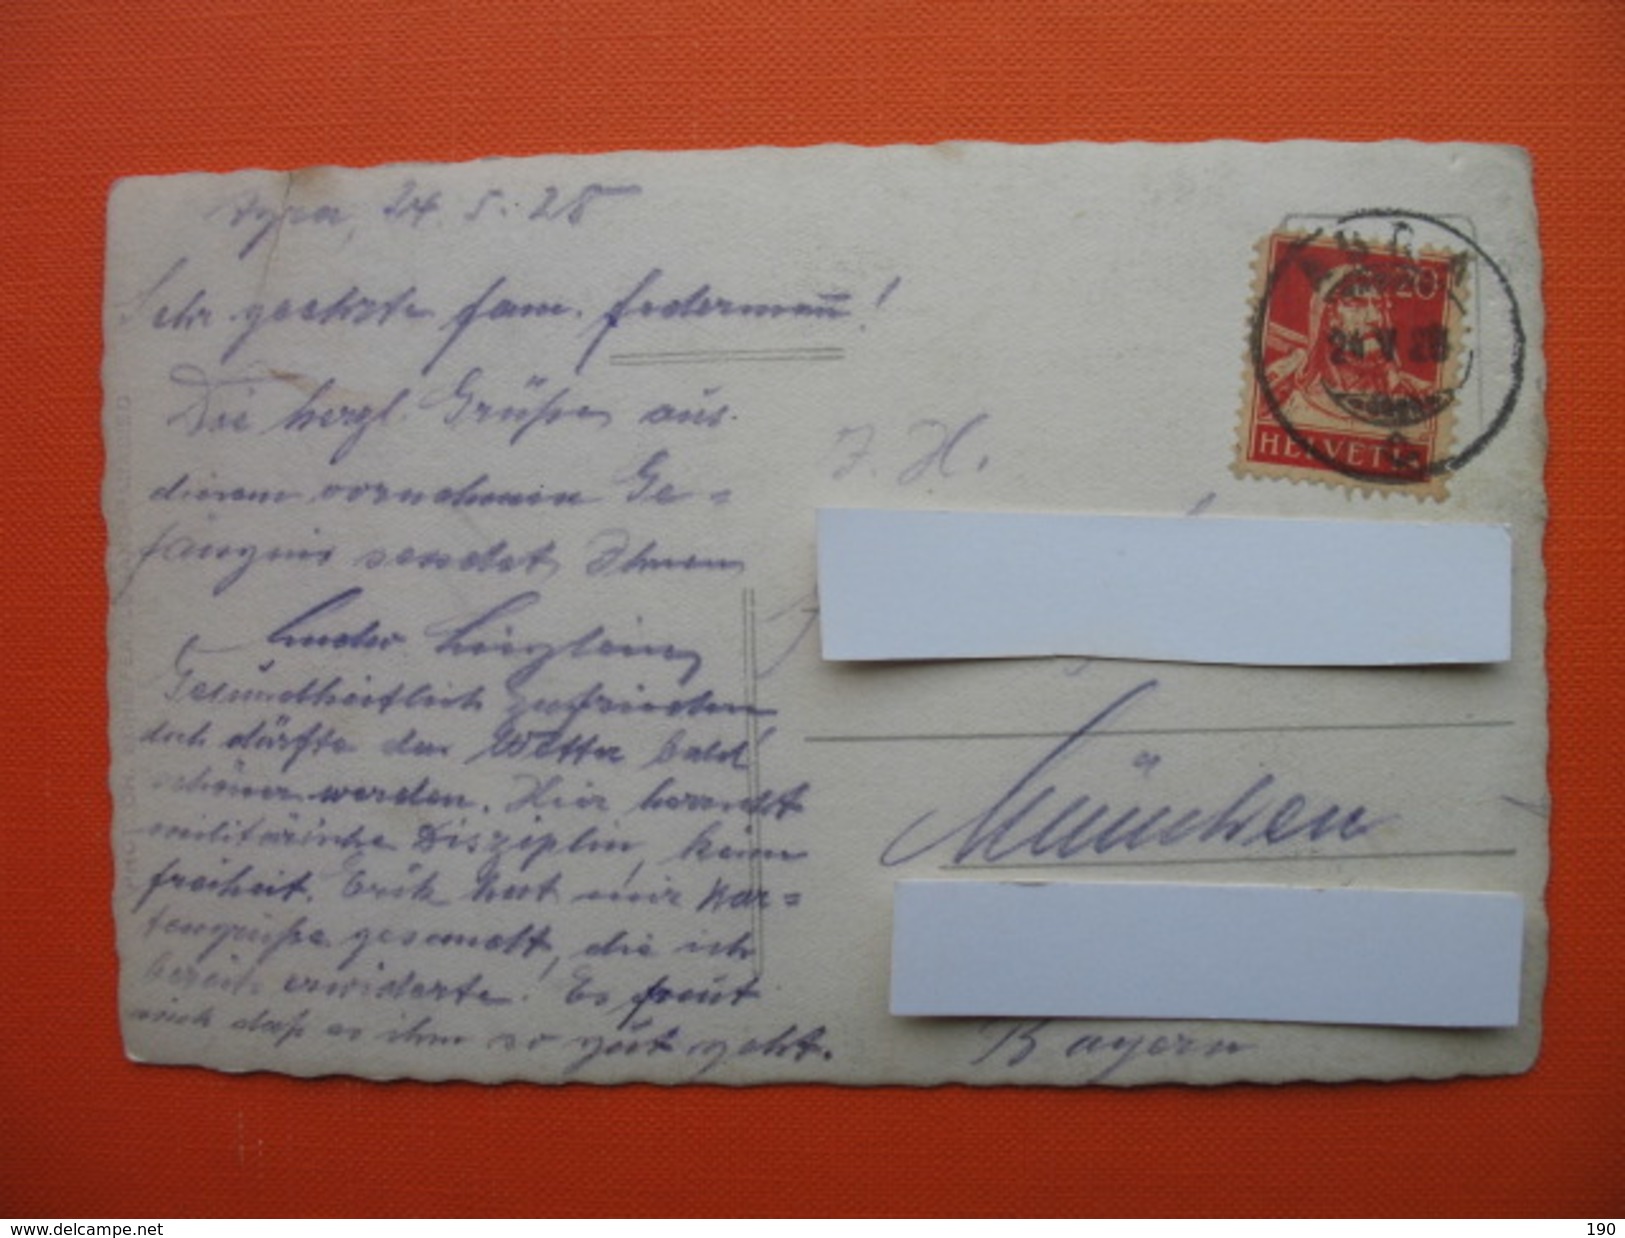 Agra, 24. 5. 28
Sehr geehrte Fam. Federmann!
Die herzl. Grüße aus
diesem vornehmen Ge=
fängnis sendet Ihnen
Gesundheitlich zufrieden
doch dürfte das Wetter bald
schöner werden. Hier herrscht
militärische Disziplin, keine
Freiheit. Erik hat mir Kar=
tengrüße gesandt, die ich
bereits erwiderte. Es freut
mich daß es ihm so gut geht.
AGRA
20
24.V.28
HELVETIA
München
Bayern
www.delcampe.net
190